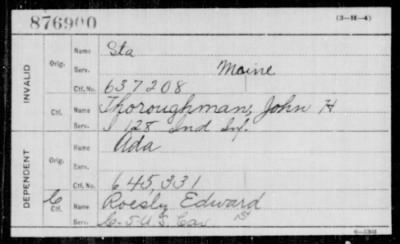 876900
(3-M-4)
INVALID
Orig.
Name Sta
Serv. Maine
Ctf. No. 637208
Ctf. Name Thoroughman, John H
Serv. I 128 Ind Inf.
DEPENDENT
Orig.
Name Ada
Serv.
Ctf. No. 645,331
C
Ctf. Name Roesly Edward
Serv. 5 U.S. Cav